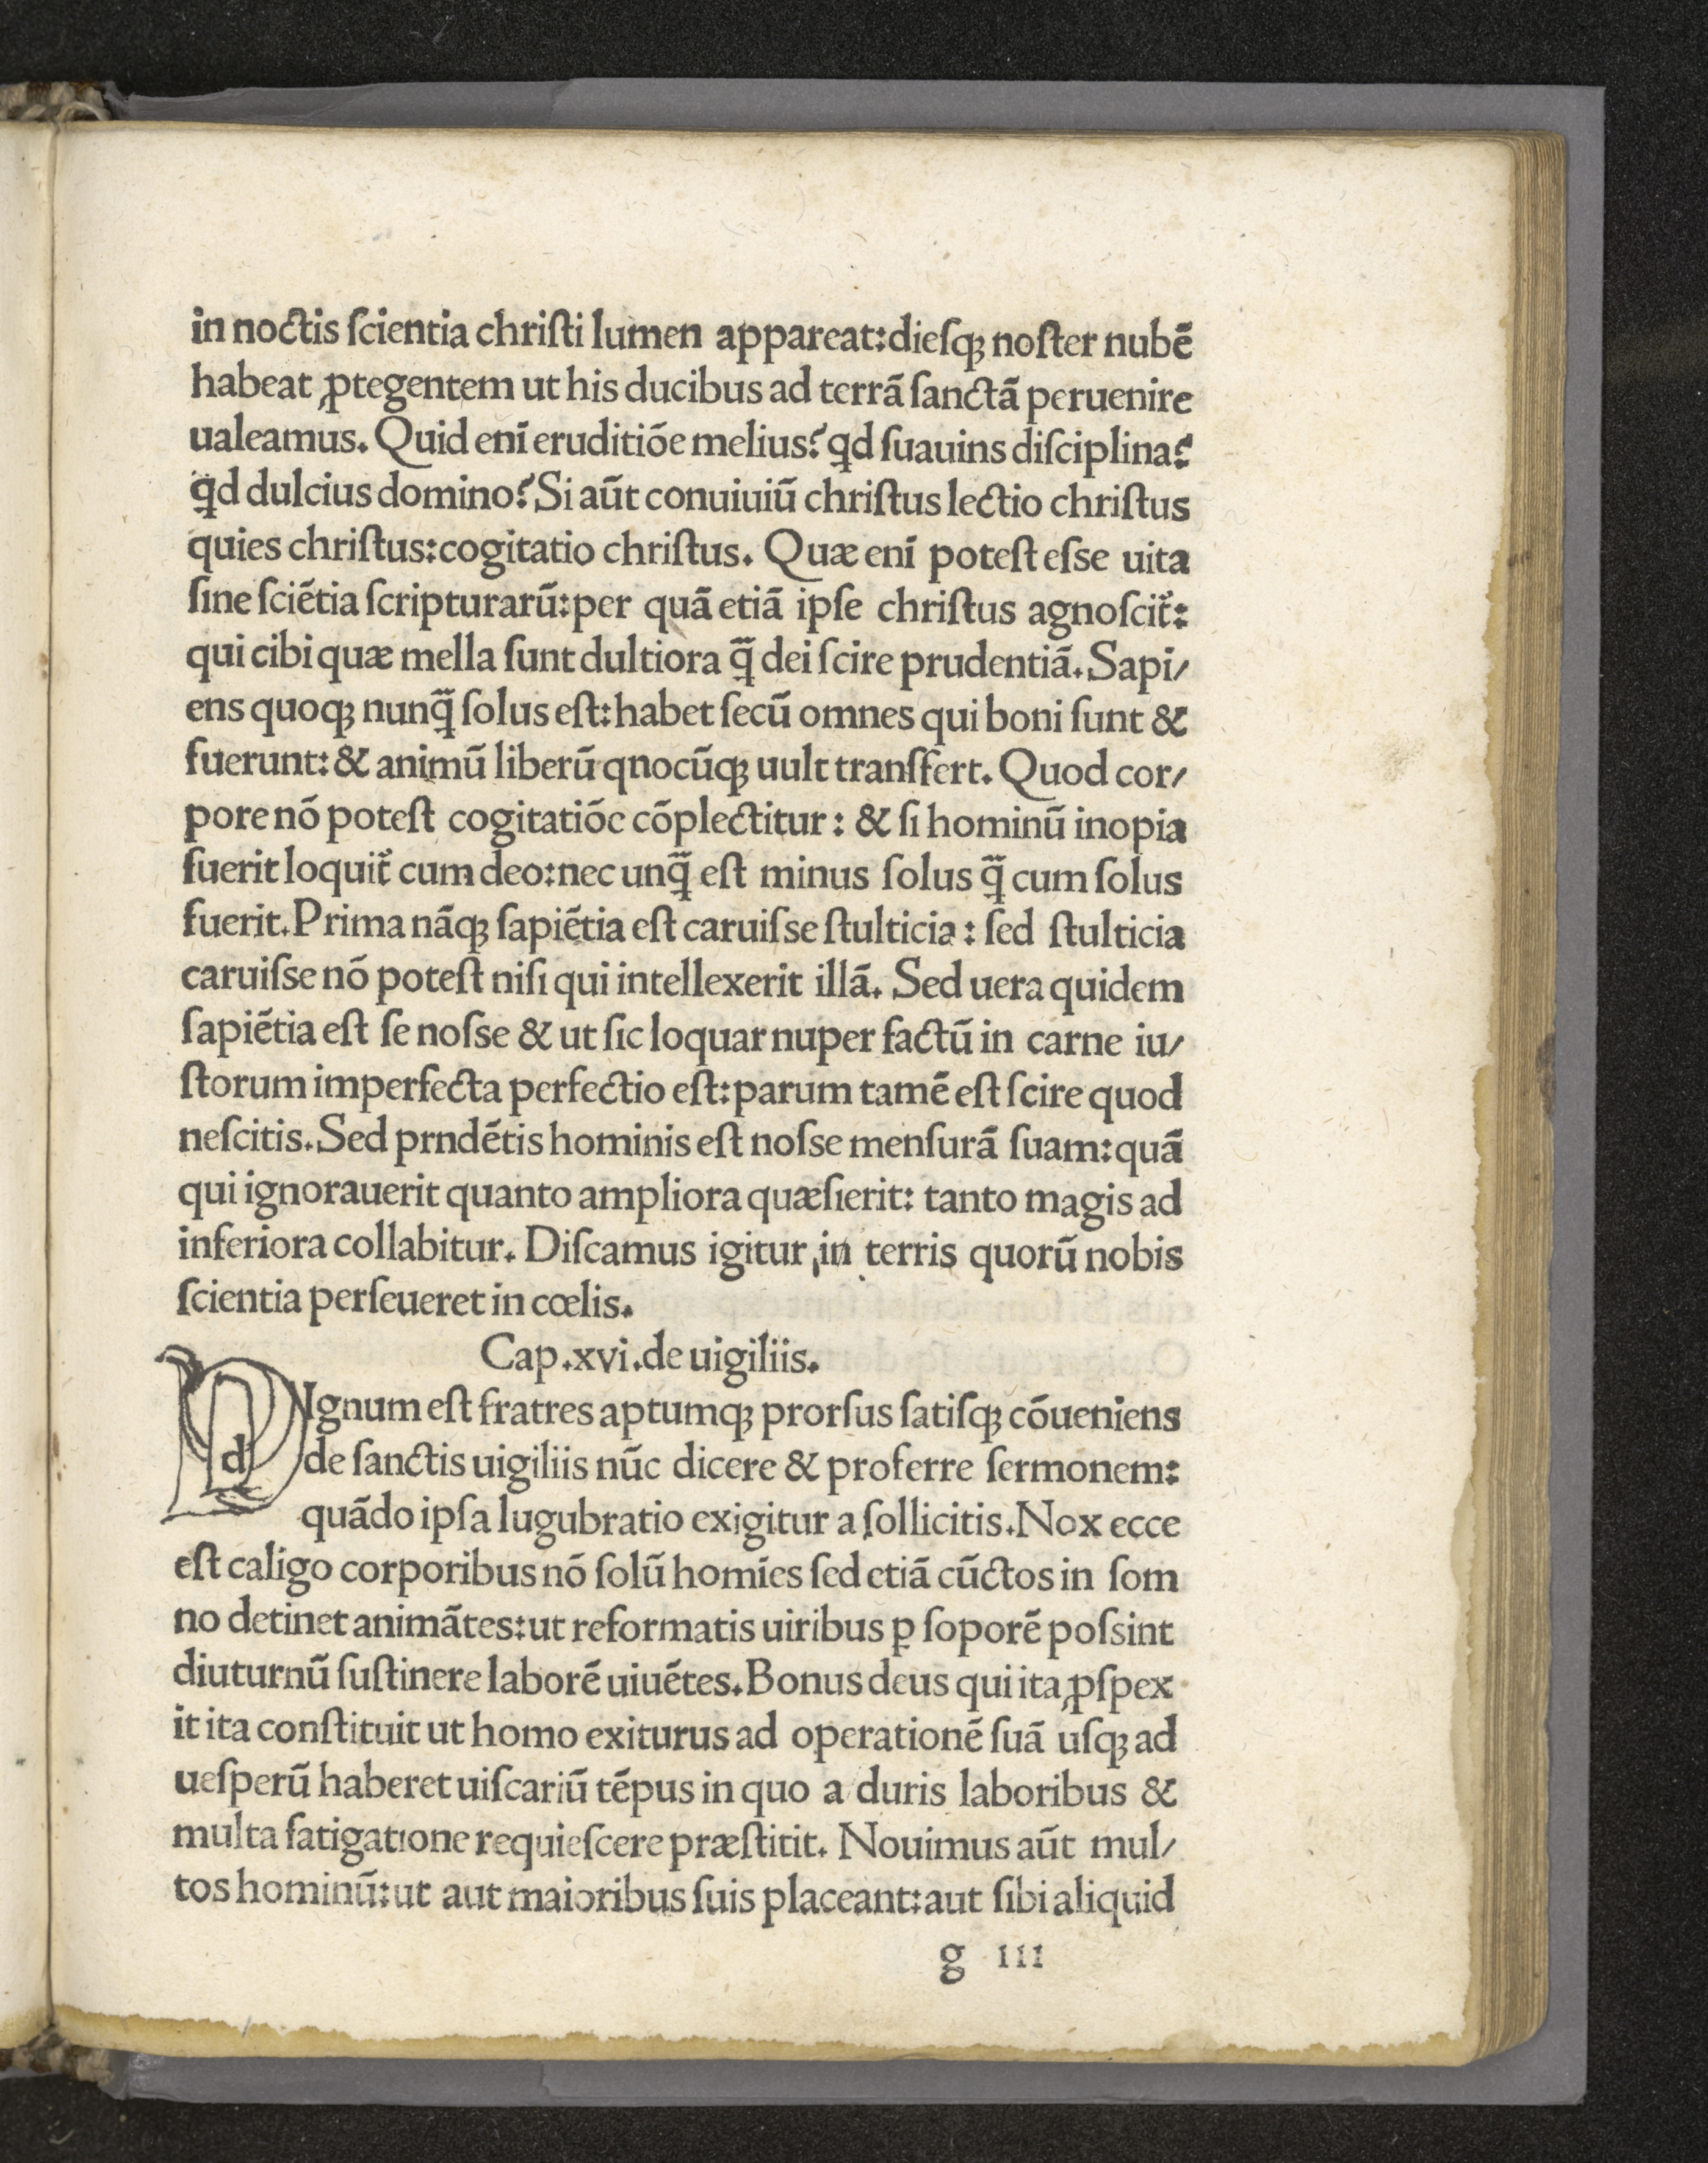 in noctis ſcientia chriſti lumen appareat:dieſqꝫ noſter nubē
habeat ꝓtegentem ut his ducibus ad terrā ſanctā peruenire
ualeamus. Quid enī eruditiōe melius? qd ſuauins diſciplina?
qd dulcius domino? Si aūt conuiuiū chriſtus lectio chriſtus
quies chriſtus:cogitatio chriſtus. Quæ enī poteſt eſse uita
ſine ſciētia ſcripturarū:per quā etiā ipſe chriſtus agnoſcit᷑:
qui cibi quæ mella ſunt dultiora q̄ dei ſcire prudentiā. Sapi/
ens quoqꝫ nunq̄ ſolus eſt:habet ſecū omnes qui boni ſunt &
fuerunt:& animū liberū qnocūqꝫ uult tranſfert. Quod cor/
pore nō poteſt cogitatiōe cōplectitur : & ſi hominū inopia
fuerit loquit᷑ cum deo:nec unq̄ eſt minus ſolus q̄ cum ſolus
fuerit. Prima nāqꝫ ſapiētia eſt caruiſse ſtulticia : ſed ſtulticia
caruiſse nō poteſt niſi qui intellexerit illā. Sed uera quidem
ſapiētia eſt ſe noſse & ut ſic loquar nuper factū in carne iu/
ſtorum imperfecta perfectio eſt:parum tamē eſt ſcire quod
neſcitis. Sed prndētis hominis eſt noſse menſurā ſuam:quā
qui ignorauerit quanto ampliora quæſierit: tanto magis ad
inferiora collabitur. Diſcamus igitur in terris quorū nobis
ſcientia perſeueret in cœlis.
Cap.xvi.de uigiliis.
dIgnum eſt fratres aptumqꝫ prorſus ſatiſqꝫ cōueniens
de ſanctis uigiliis nūc dicere & proferre ſermonem:
quādo ipſa lugubratio exigitur a ſollicitis. Nox ecce
eſt caligo corporibus nō ſolū homīes ſed etiā cūctos in ſom
no detinet animātes:ut reformatis uiribus ꝑ ſoporē poſsint
diuturnū ſuſtinere laborē uiuētes. Bonus deus qui ita ꝓſpex
it ita conſtituit ut homo exiturus ad operationē ſuā uſqꝫ ad
ueſperū haberet uiſcariū tēpus in quo a duris laboribus &
multa fatigatione requieſcere præſtitit. Nouimus aūt mul/
tos hominū:ut aut maioribus ſuis placeant:aut ſibi aliquid
g iii